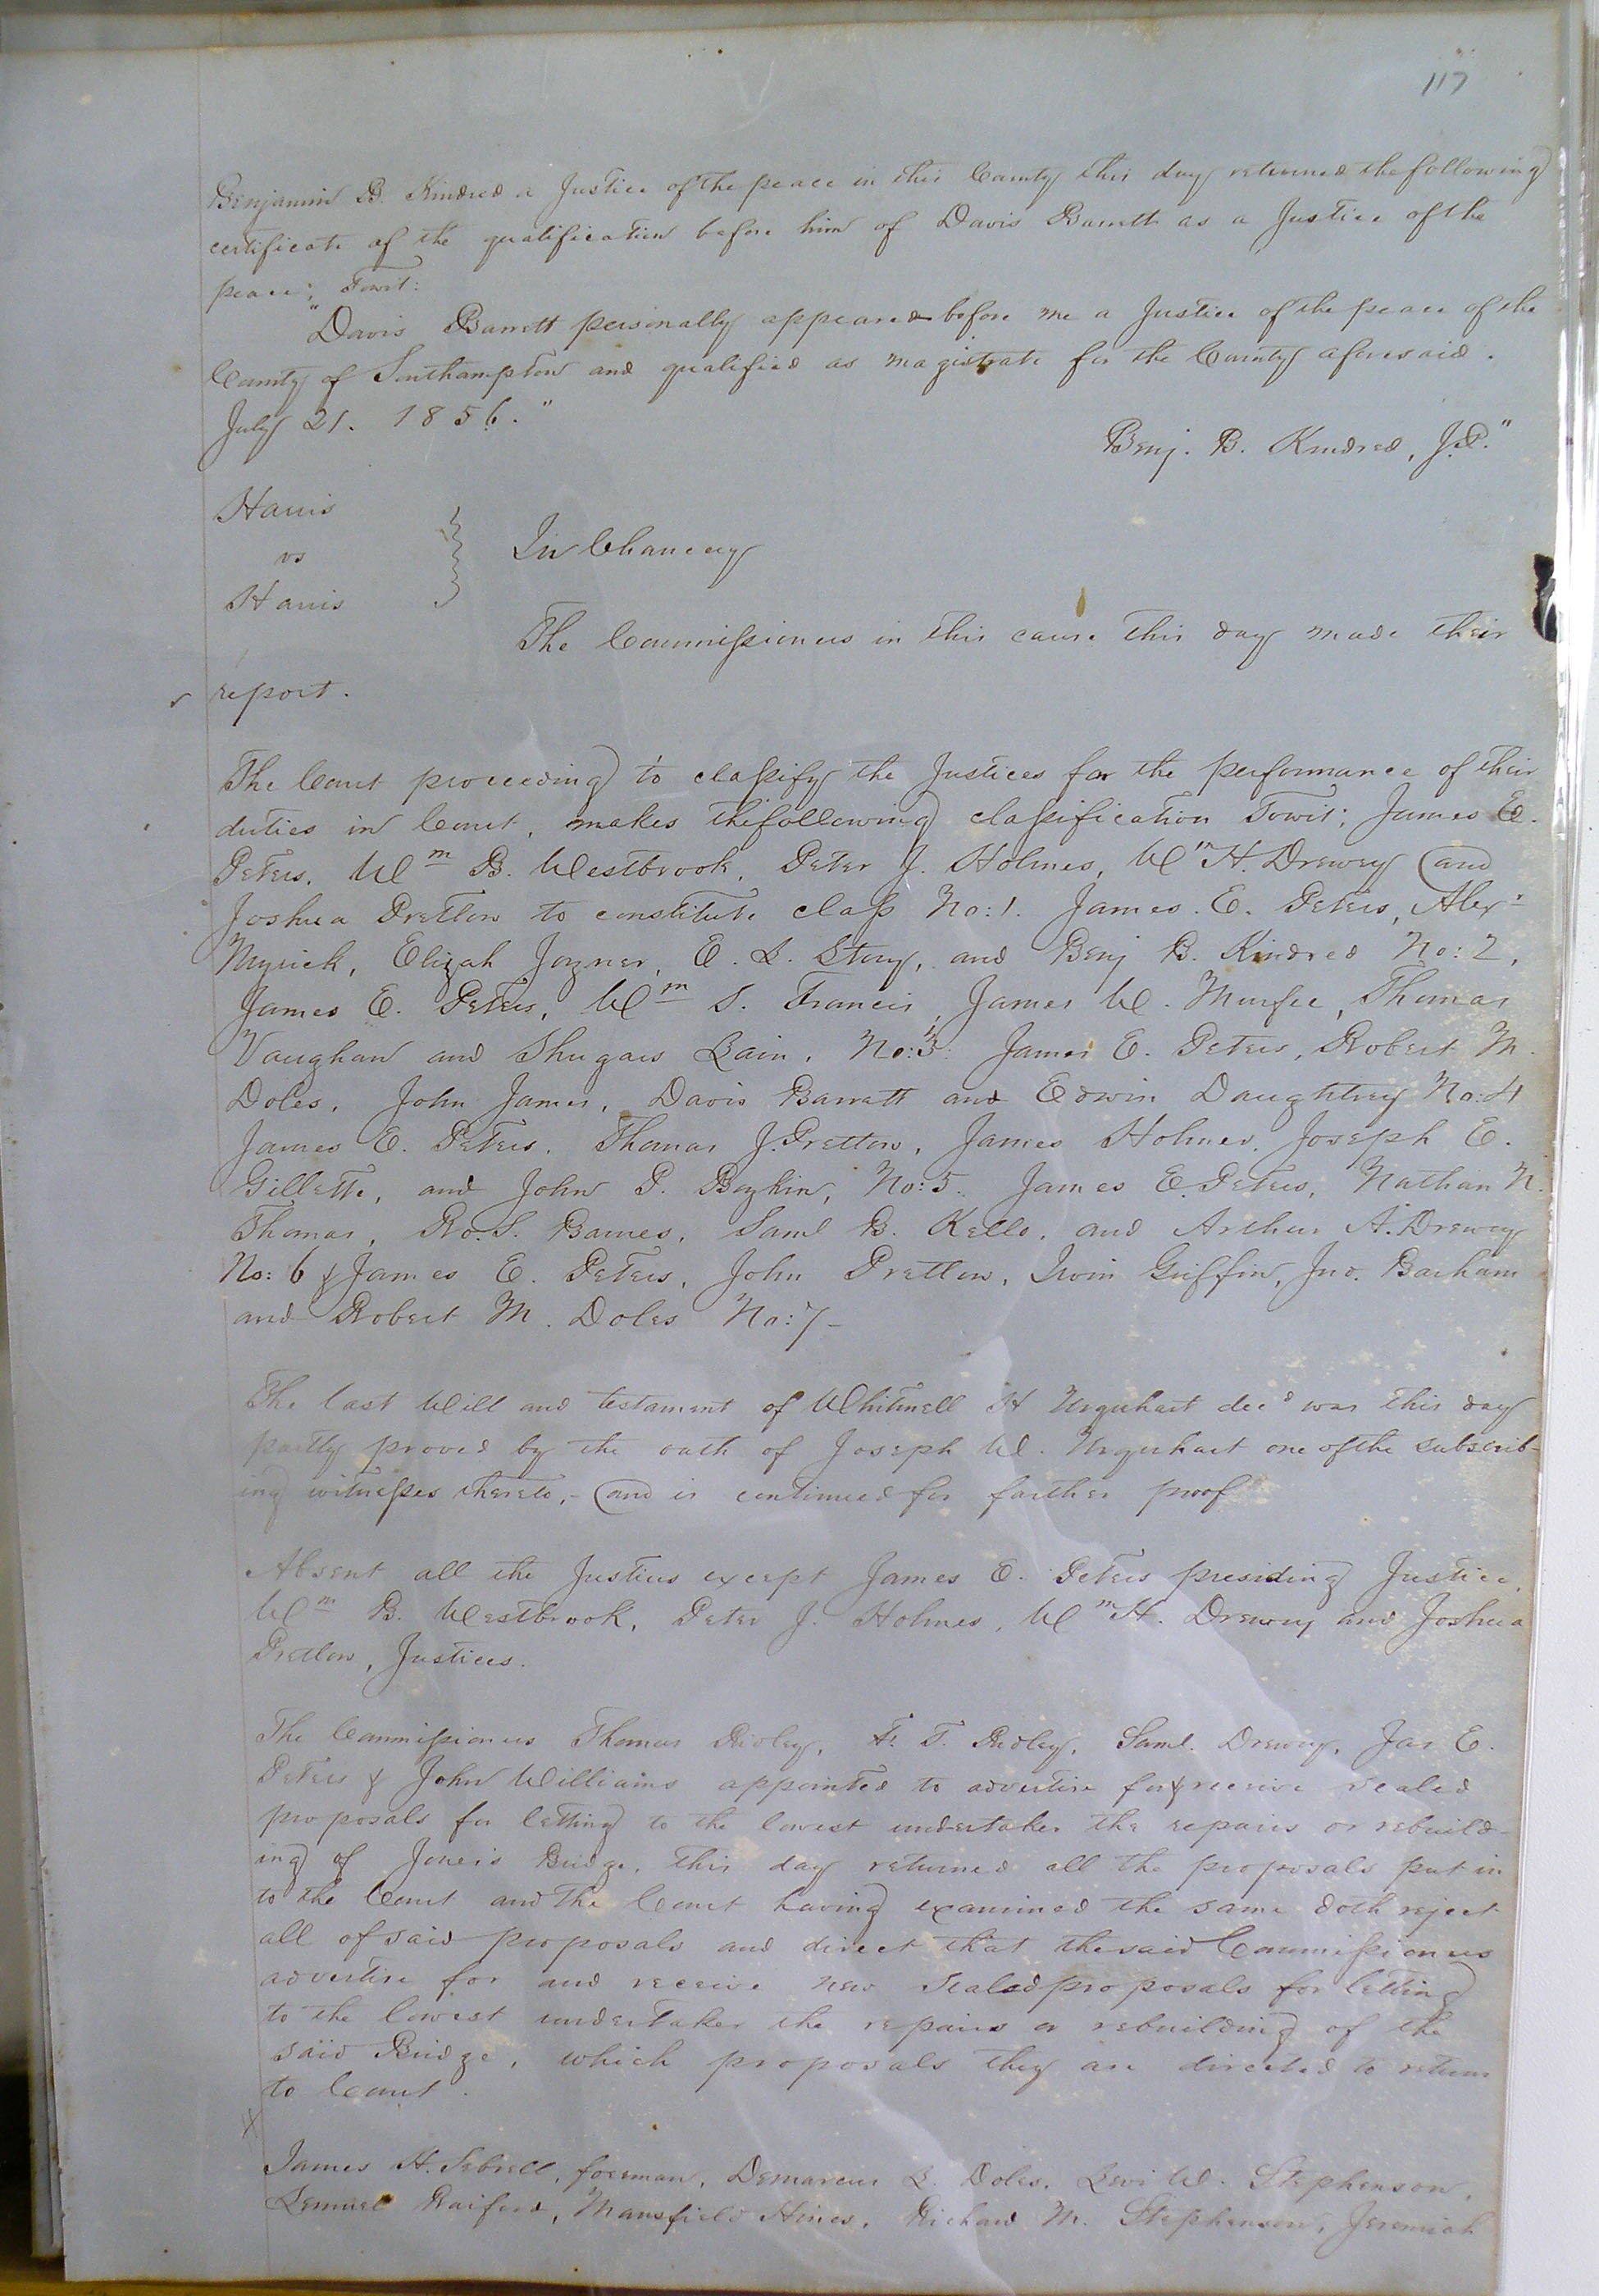 117
Benjamin B. Kindred a Justice of the peace in this County this day returned the following
certificate of the qualification before him of Davis Barrett as a Justice of the
peace; Towit:
"Davis Barrett personally appeared before me a Justice of the peace of the
County of Southampton and qualified as magistrate for the County aforesaid.
July 21. 1856."
Benj. B. Kindred, J.P."
Harris
vs
Harris
In Chancery
The Commissioners in this cause this day made their
report.
The Court proceeding to classify the Justices for the performance of their
duties in Court, makes the following classification Towit; James E.
Peters, Wm B. Westbrook, Peter J. Holmes, Wm H. Drewry and
Joshua Pretlow to constitute class No: 1. James. E. Peters, Alexr
Myrick, Elijah Joyner, E. L. Story, and Benj B. Kindred No: 2,
James E. Peters, Wm S. Francis, James W. Murfee, Thomas
Vaughan and Shugars Lain, No: 3: James E. Peters, Robert M.
Doles, John James, Davis Barratt and Edwin Daughtrey No: 4
James E. Peters, Thomas J. Pretlow, James Holmes, Joseph E.
Gillette, and John P. Boykin, No: 5. James E. Peters, Nathan N.
Thomas, Ro. S. Barnes, Saml B. Kello, and Arthur A. Drewry
No: 6 & James E. Peters, John Pretlow, Irvin Griffin, Jno. Barham
and Robert M. Doles No: 7-
The last Will and testament of Whitmell H Urquhart decd was this day
partly proved by the oath of Joseph W. Urquhart one of the subscrib-
ing witnesses thereto,- and is continued for farther proof
Absent all the Justices except James E. Peters presiding Justice,
Wm B. Westbrook, Peter J. Holmes, Wm H. Drewry and Joshua
Pretlow, Justices.
The Commissioners Thomas Ridley, Fr. T. Ridley, Saml. Drewry, Jas E.
Peters & John Williams appointed to advertise for & receive sealed
proposals for letting to the lowest undertaker the repairs or rebuild-
ing of Jones's Bridge, this day returned all the proposals put in
to the Court and the Court having examined the same doth reject
all of said proposals and direct that the said Commissioners
advertise for and receive new Sealed proposals for letting
to the lowest undertaker the repairs or rebuilding of the
said Bridge, which proposals they are directed to return
to Court.
James H. Sebrell, foreman, Demarcus L. Doles, Levi W. Stephenson,
Lemuel Raiford, Mansfield Hines, Richard M. Stephenson, Jeremiah